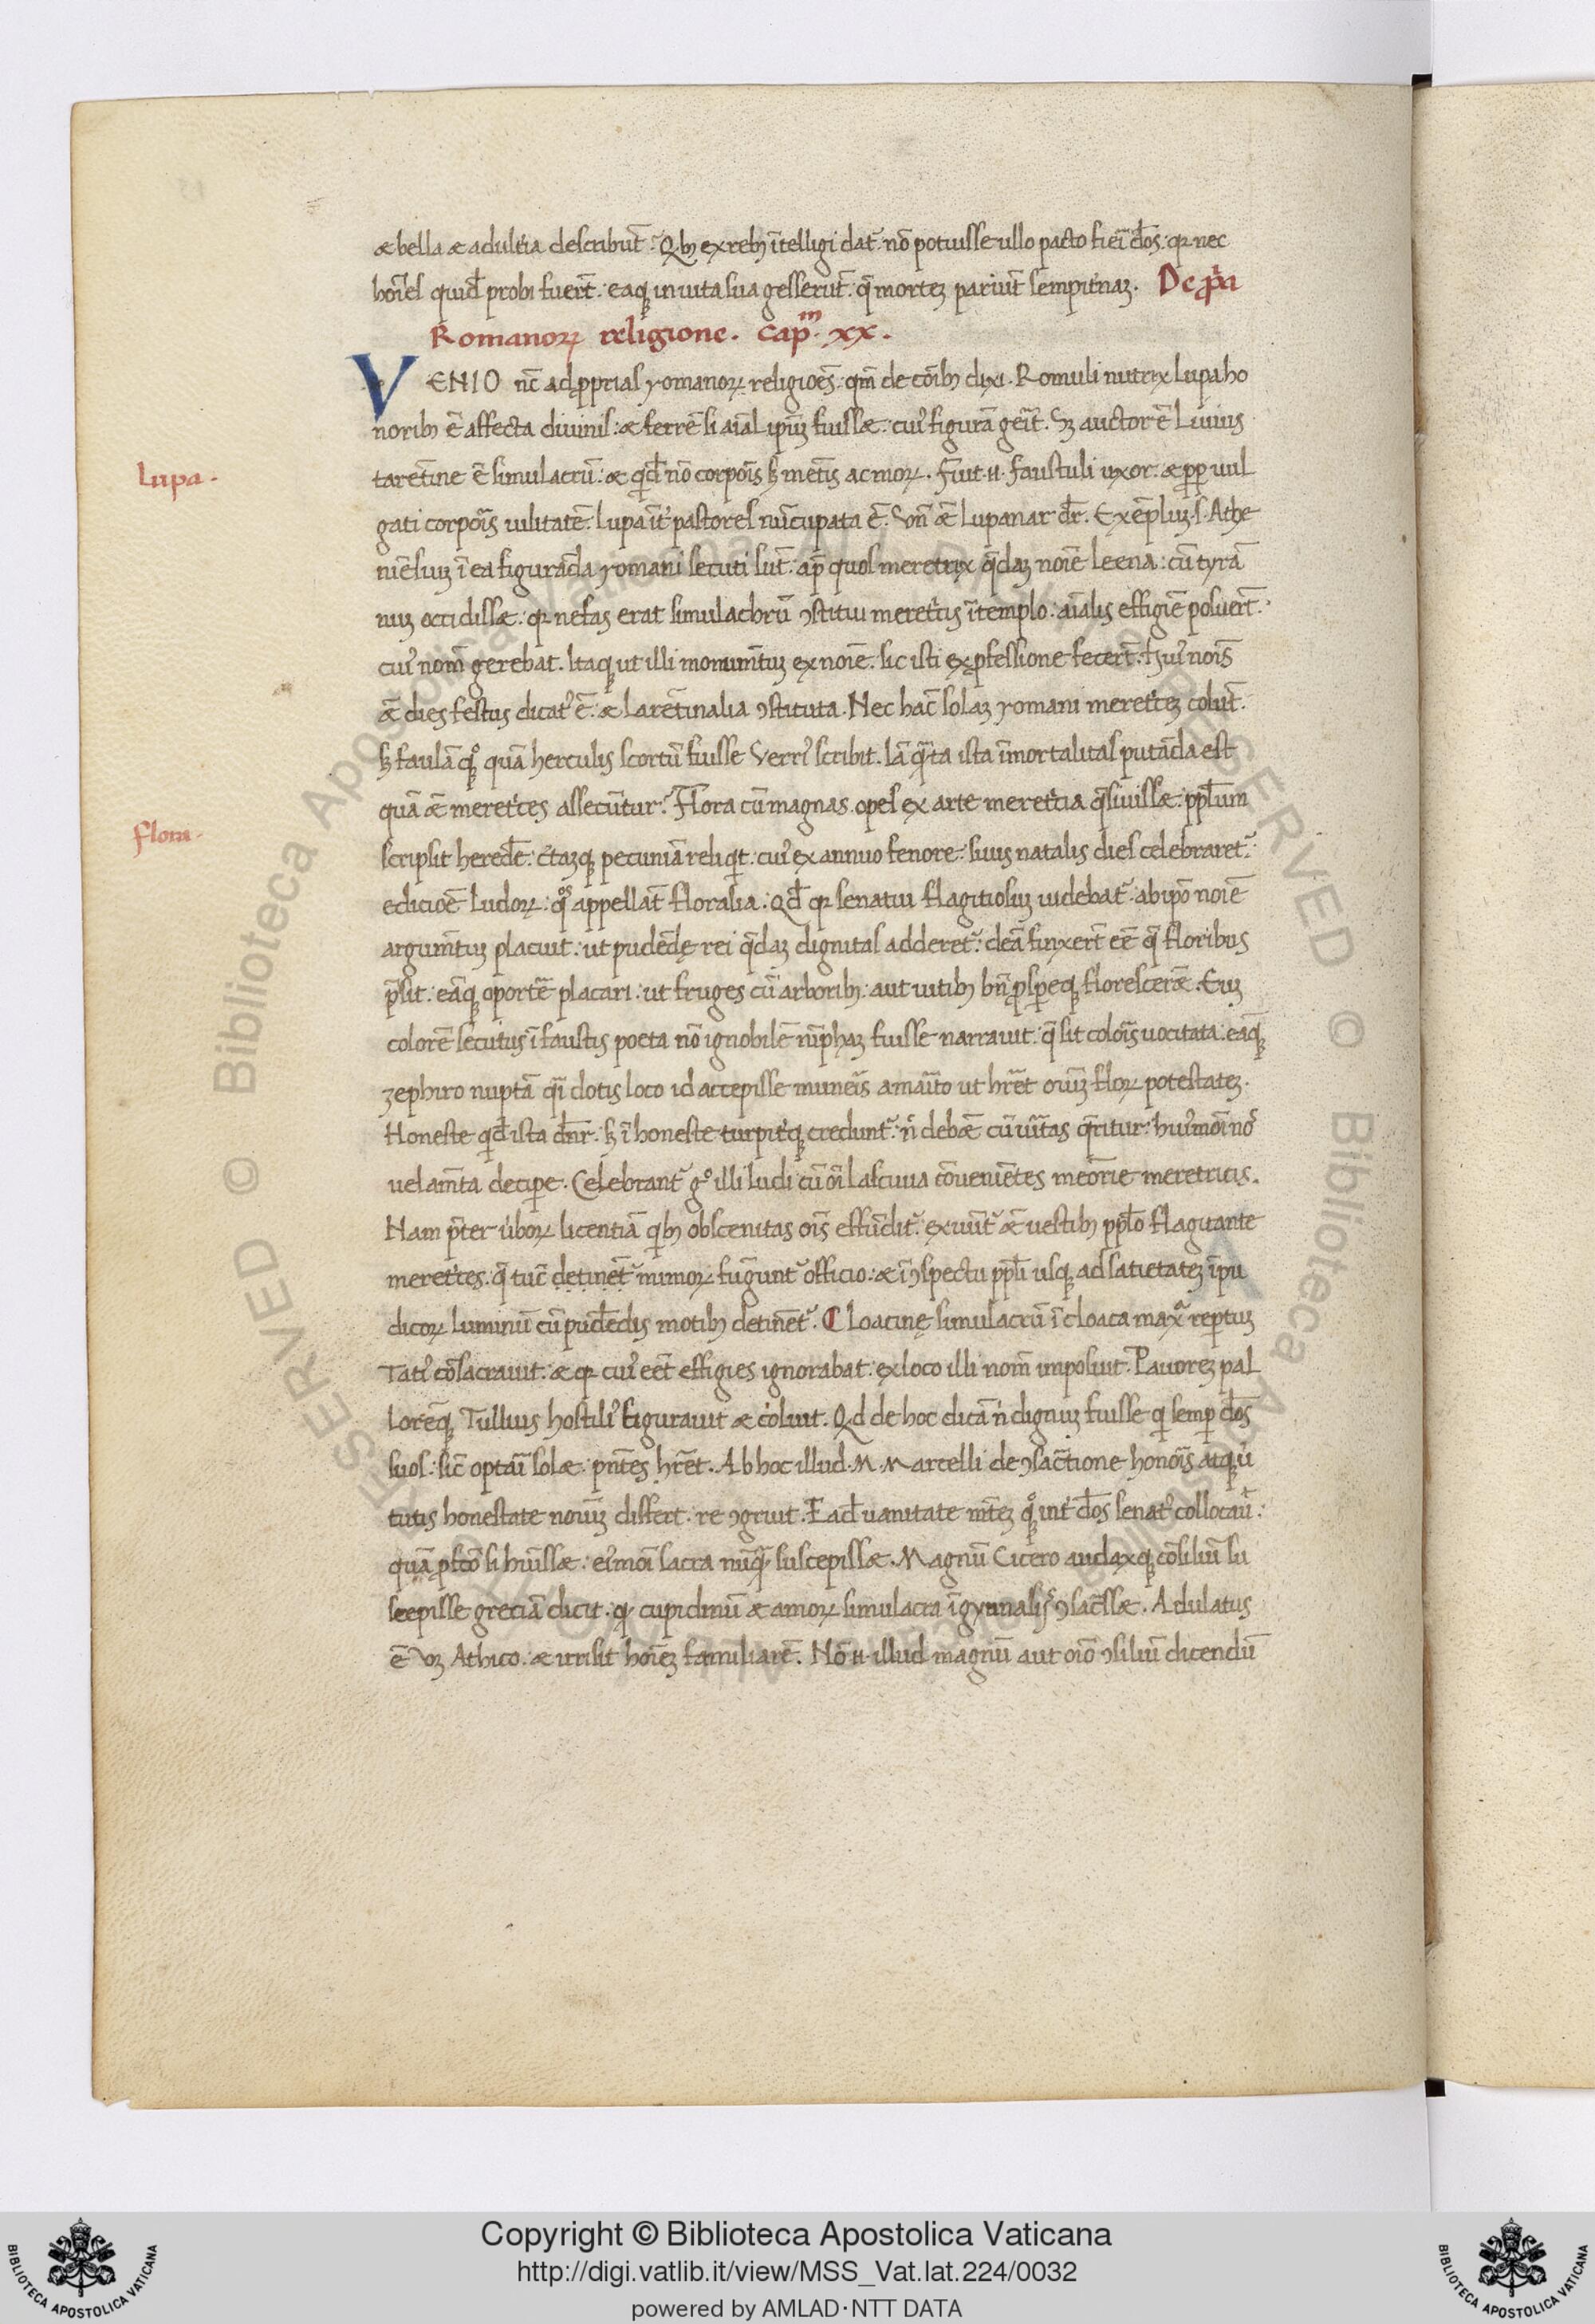 æ bella æ adultia describut̄: Qb; ex reb; ītelligi dat᷑: nō potuisse ullo pacto fieī d̄os: qr nec
hoīes quid̄ probi fuert̄: eaq; in uita sua gesserūt: q̄ mortez pariūt sempit̄naz. De p̄pa
Romanoꝝ religione. cap.m xx.
VENIO nc̄ ad p̄prias romanoꝝ religioēs: qm̄ de cōib; dixi. Romuli nutrix Lupa ho
Lupa.
norib; ē affecta diuinis: æ ferrē si aīal ipm̄ fuissæ: cui᷒ figurā geīt. Vz auctor ē Liuius
tarētine ē simulacrū: æ qd̄ nō corpoīs sꝫ mētis ac moꝝ. Fuit .n. faustuli uxor: æ pp̄ uul
gati corpoīs uilitatē: Lupa īt᷑ pastores nūcupata ē. Vn̄ ǣ Lupanar dr̄. Exēpluz .s. Athe
niēsiuz ī ea figurāda romani secuti sūt: ap̄ quos meretrix q̄daz noīe leena: cū tyrā
nuz occidissæ: qr nefas erat simulachrū ꝯstitui meret̄cis ī templo: aīalis effigiē posuert̄:
cui᷒ nom̄ gerebat. Itaq; ut illi monumt̄uz ex noīe: sic isti ex p̄fessione fecert̄: hui᷒ noīs
ǣ dies festus dicat᷒ ē: æ Larētinalia ꝯstituta. Nec hac̄ solaz romani meret̄cez colut̄:
sꝫ faulā q̊q; quā herculis scortū fuisse Verri᷒ scribit. Iā q̄ta ista īmortalitas putāda est
quā ǣ meret̄ces assecūtur? Flora cū magnas opes ex arte meret̄cia q̄siuissæ: ppl̄um
flora.
scripsit hered̄e: c̄tazq; pecuniā reliqt: cui᷒ ex annuo fenore: suus natalis dies celebraret᷑:
edicioē Ludoꝝ: q̊s appellāt floralia. Qd̄ qr senatui flagitiosuz uidebat᷑: ab ipō noīe
argumt̄uz placuit: ut pudēdę rei q̄daz dignitas adderet᷑: deā finxert̄ eē q̄ floribus
p̄sit: eāq; oportē placari: ut fruges cū arborib; aut uitib; bn̄ p̄speq; florescerǣ. Euz
colorē secutus ī faustis poeta nō ignobilē nīphaz fuisse narrauit: q̄ sit coloīs uocitata: eaq;
zephiro nuptā qī dotis loco id accepisse muneīs a maīto ut hret̄ oīuz floꝝ potestatez.
Honeste qd̄ ista dn̄r: sꝫ ī honeste turpit᷑q; credunt᷑: n̄ debǣ cū uītas q̄ritur: hui᷒moī nō
uelamt̄a decipe. Celebrant᷑ g̊ illi ludi cū oī lasciuia cōueniētes meōrie meretricis.
Nam p̄ter ūboꝝ licentiā qb; obscenitas oīs effūdit᷑: exuūt᷑ ǣ uestib; ppl̄o flagitante
meret̄ces: q̄ tūc detinēt᷑ mimoꝝ fūgunt᷑ officio: æ ī ꝯspectu ppl̄i usq; ad satietatez īpu
dicoꝝ luminū cū pudēdis motib; detinēt᷑. Cloacinę simulacrū ī cloaca maxͣ reptuz
Tati᷒ cōsacrauit: æ qr cui᷒ eēt effigies ignorabat: ex loco illi nom̄ imposuit. Pauorez pal
Loreq; Tullius hostili᷒ figurauit æ coluit. Qd de hoc dicā n̄ dignuz fuisse q semp d̄os
suos: sic̄ optaī solæ: pn̄tes hret̄. Ab hoc illud .M. Marcelli de ꝯsac̄tione honoīs atq; ū
tutis honestate noīuz differt: re ꝯgruit. Ead̄ uanitate mt̄ez q̊q; int̄ d̄os senat᷒ collocaū̄:
quā p̄fcō si hūissæ: ei᷒moī sacra nūq̄ suscepissæ. Magnū Cicero audaxq; cōsiliū su
scepisse greciā dicit: q cupidinū æ amoꝝ simulacra ī gymnasiis ꝯsac̄ssæ. Adulatus
ē Vz Athico: æ irrisit hoīez familiarē. Nō .n. illud magnū aut oīo ꝯsiliū dicendū
Copyright © Biblioteca Apostolica Vaticana
http://digi.vatlib.it/view/MSS_Vat.lat.224/0032
powered by AMLAD·NTT DATA